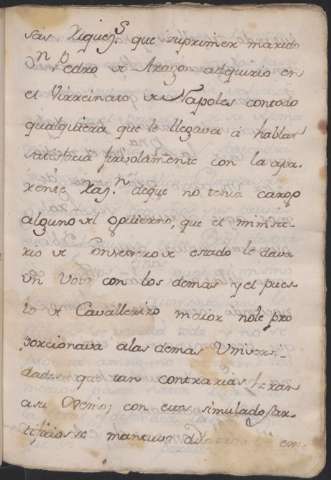 sas Riquezˢ que suprimer marido
Dⁿ Pedro de Aragon adquirio en
el Virreinato de Napoles contodo
qualquiera que le llegava á hablar
satisfacia frivolamente con la apa-
rente Razⁿ deque no tenia cargo
alguno del govierno, que el minis-
rio de Consexero de estado le dava
un Voto con los demas y el pues-
to de Cavallerizo maior nole pro
porcionava alas demas Univers-
dades que tan contrarias heran
asu Genio; con estos simulados ar-
tificios se mantuvo